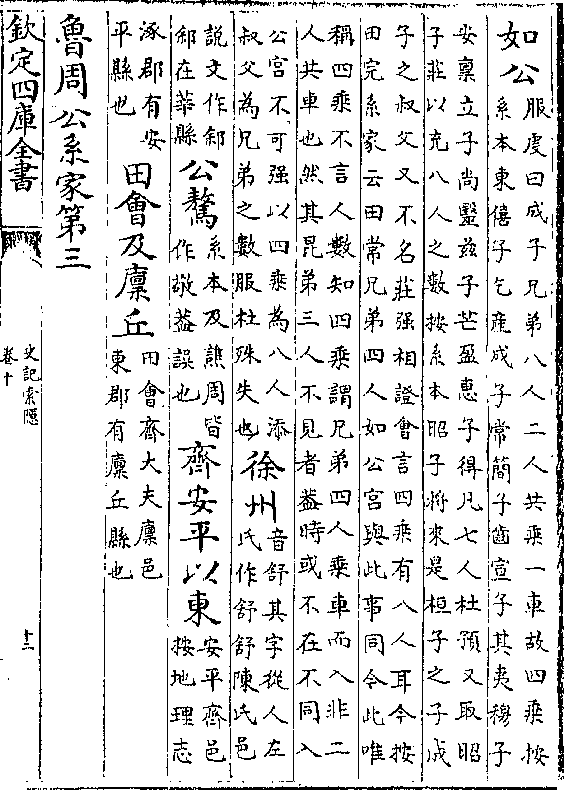 如公
服虔曰成子兄弟八人二人共乘一車故四乘按
系本東僖子乞產成子常簡子箇宣子其夷穆子
安禀立子尚毉兹子芒盈惠子得凡七人杜預又取昭
子莊以充八人之數按系本昭子將來是桓子之子成
子之叔父又不名莊强相證會言四乘有八人耳今按
田完系家云田常兄弟四人如公宮與此事同今此唯
稱四乘不言人數知四乘謂兄弟四人乘車而入非二
人共車也然其昆弟三人不見者葢時或不在不同入
公宮不可强以四乘為八人添
叔父為兄弟之數服杜殊失也
徐州
音舒其字從人左
氏作舒舒陳氏邑
說文作䣄
䣄在薛縣
公驁
系本及譙周皆
作敬葢誤也
齊安平以東
安平齊邑
按地理志
涿郡有安
平縣也
田會及廩丘
田會齊大夫廩邑
東郡有廩丘縣也
魯周公系家第三
欽定四庫全書
史記索隱
卷十
十三